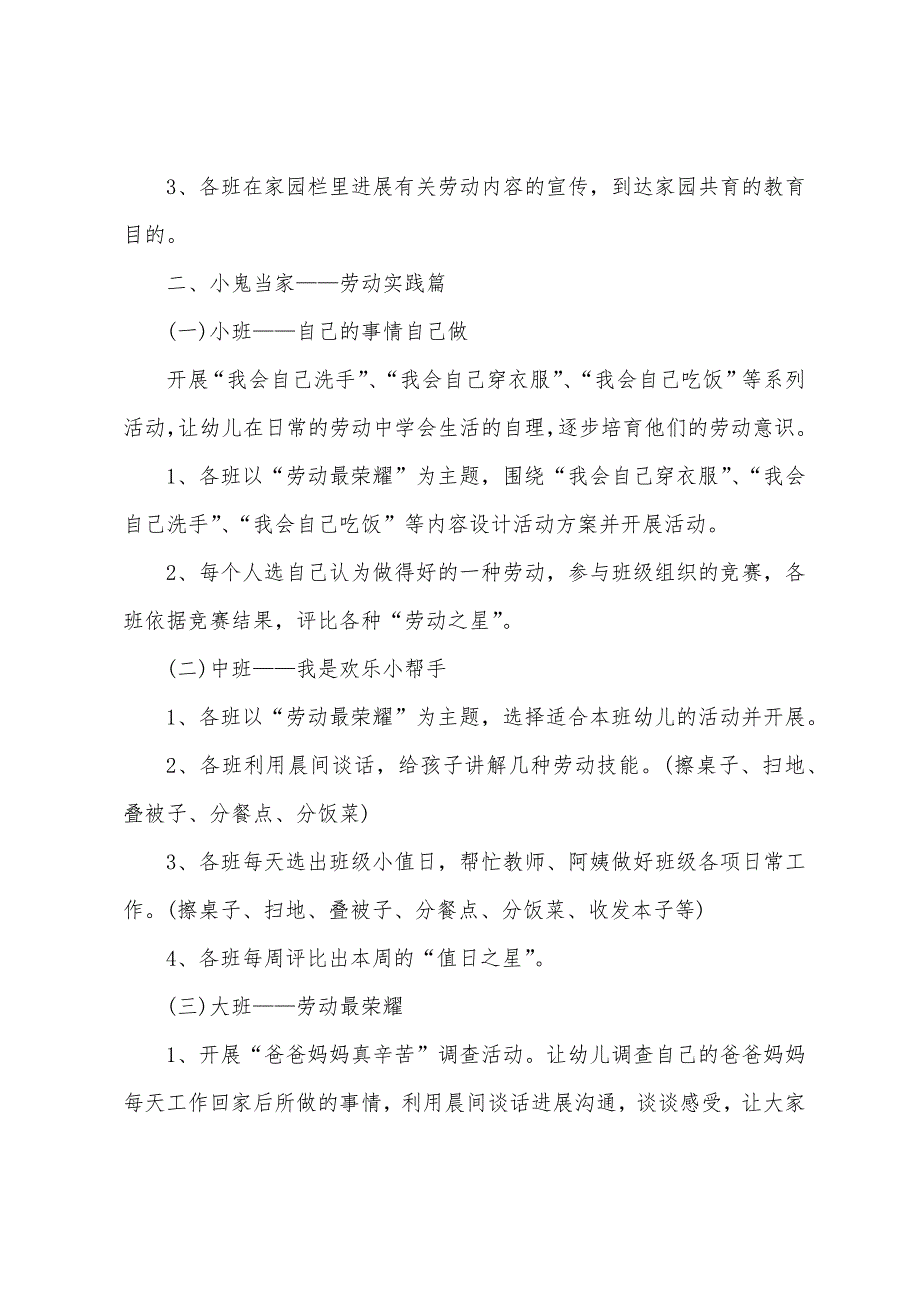 3、各班在家园栏里进展有关劳动内容的宣传，到达家园共育的教育
目的。
二、小鬼当家——劳动实践篇
(一)小班——自己的事情自己做
开展“我会自己洗手”、“我会自己穿衣服”、“我会自己吃饭”等系列
活动,让幼儿在日常的劳动中学会生活的自理,逐步培育他们的劳动意识。
1、各班以“劳动最荣耀”为主题，围绕“我会自己穿衣服”、“我会
自己洗手”、“我会自己吃饭”等内容设计活动方案并开展活动。
2、每个人选自己认为做得好的一种劳动，参与班级组织的竞赛，各
班依据竞赛结果，评比各种“劳动之星”。
(二)中班——我是欢乐小帮手
1、各班以“劳动最荣耀”为主题，选择适合本班幼儿的活动并开展。
2、各班利用晨间谈话，给孩子讲解几种劳动技能。(擦桌子、扫地、
叠被子、分餐点、分饭菜)
3、各班每天选出班级小值日，帮忙教师、阿姨做好班级各项日常工
作。(擦桌子、扫地、叠被子、分餐点、分饭菜、收发本子等)
4、各班每周评比出本周的“值日之星”。
(三)大班——劳动最荣耀
1、开展“爸爸妈妈真辛苦”调查活动。让幼儿调查自己的爸爸妈妈
每天工作回家后所做的事情，利用晨间谈话进展沟通，谈谈感受，让大家